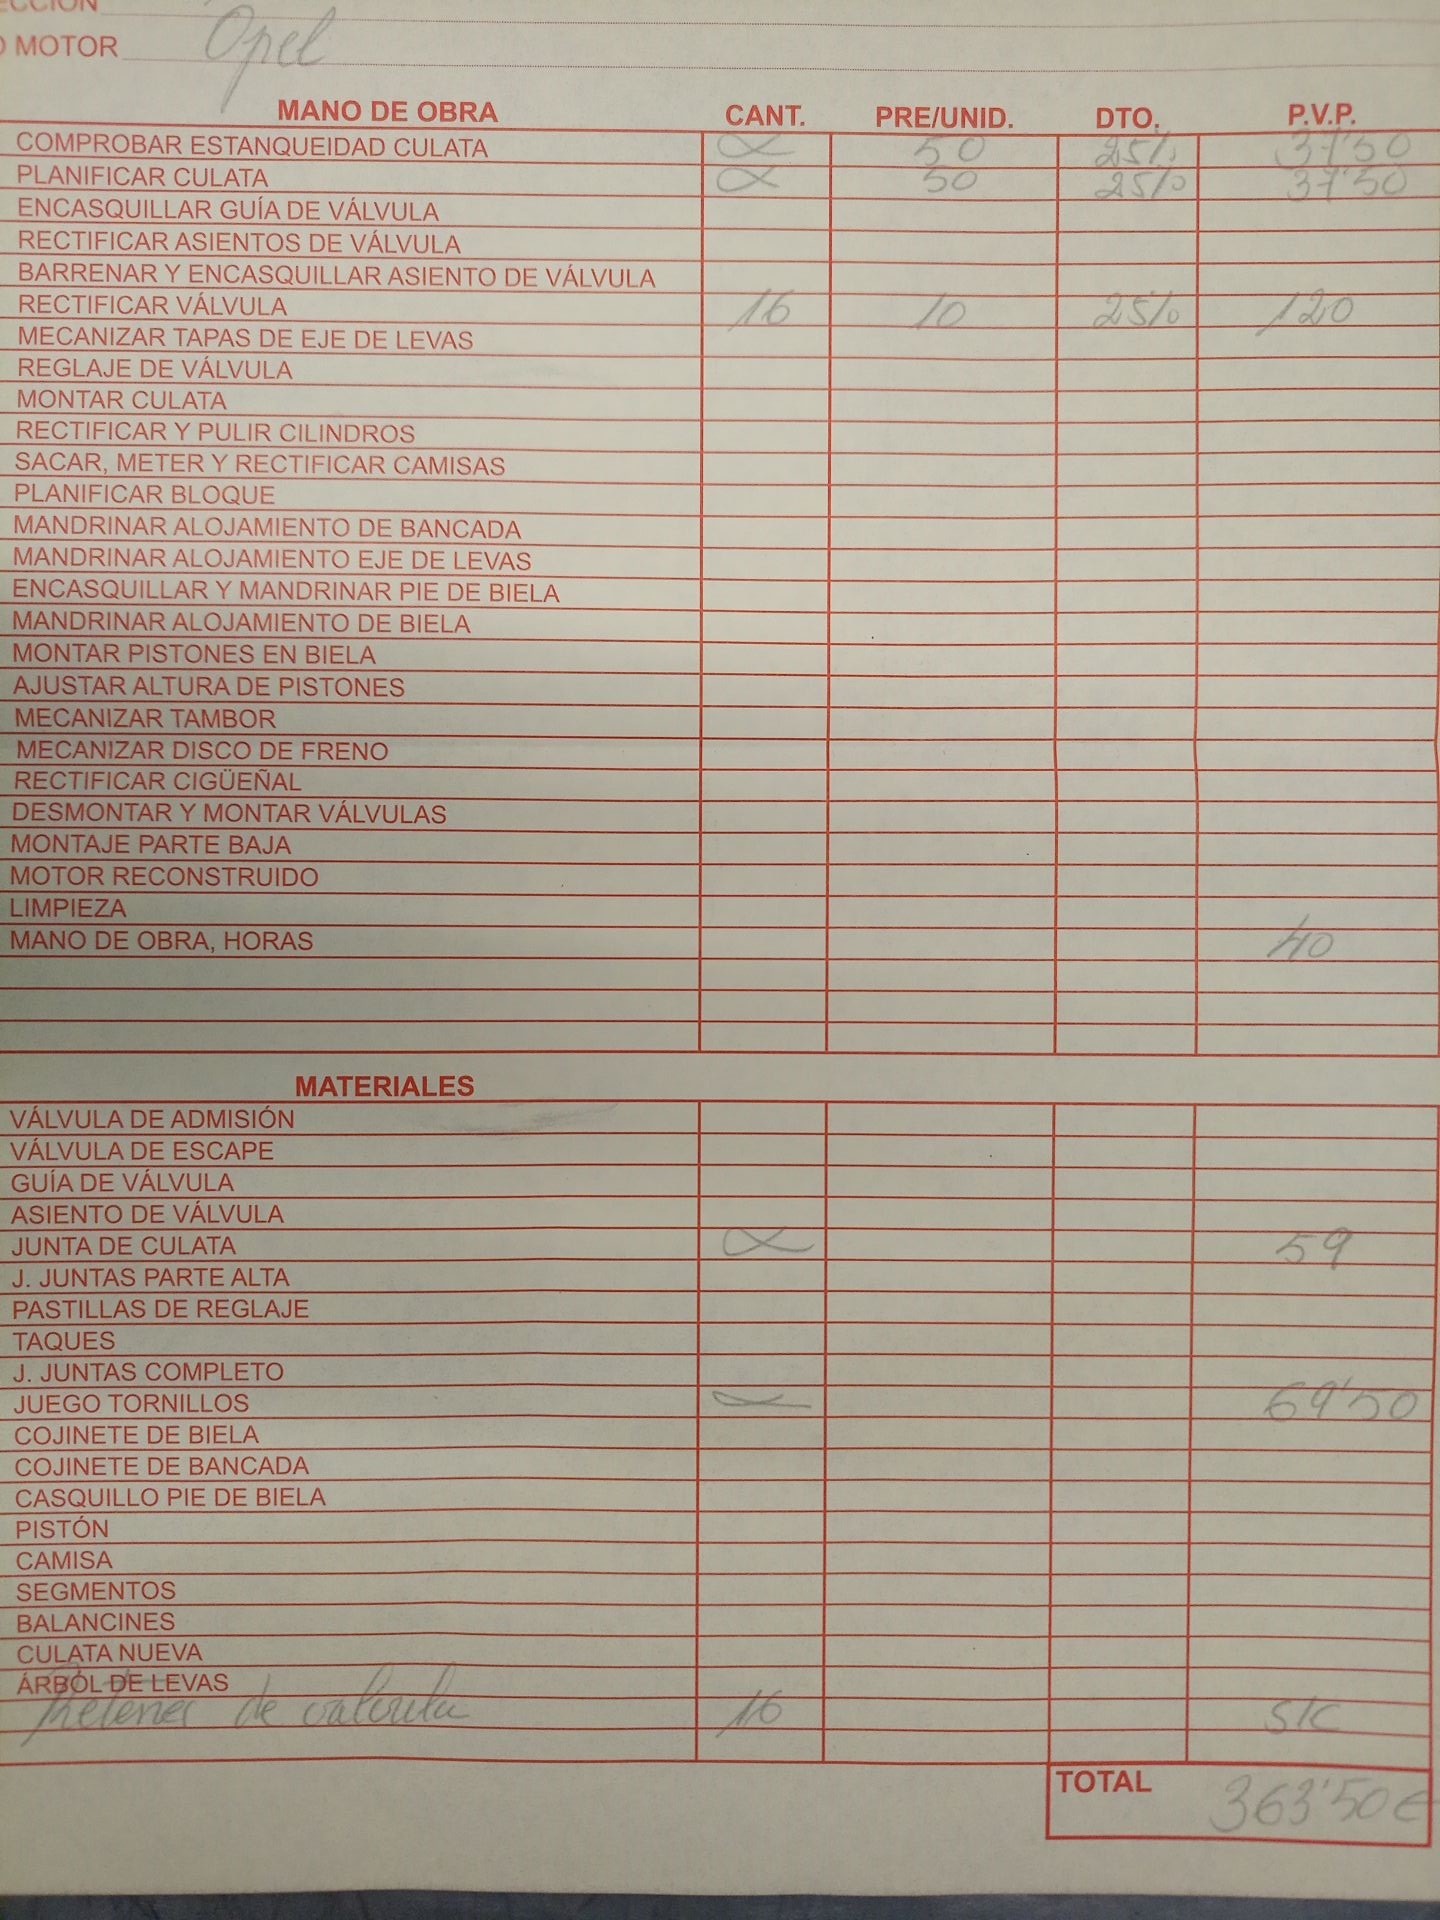 ECCIÓN
O MOTOR Opel
MANO DE OBRA CANT. PRE/UNID. DTO. P.V.P.
COMPROBAR ESTANQUEIDAD CULATA 50 25% 37'50
PLANIFICAR CULATA 50 25% 37'50
ENCASQUILLAR GUÍA DE VÁLVULA
RECTIFICAR ASIENTOS DE VÁLVULA
BARRENAR Y ENCASQUILLAR ASIENTO DE VÁLVULA
RECTIFICAR VÁLVULA 16 10 25% 120
MECANIZAR TAPAS DE EJE DE LEVAS
REGLAJE DE VÁLVULA
MONTAR CULATA
RECTIFICAR Y PULIR CILINDROS
SACAR, METER Y RECTIFICAR CAMISAS
PLANIFICAR BLOQUE
MANDRINAR ALOJAMIENTO DE BANCADA
MANDRINAR ALOJAMIENTO EJE DE LEVAS
ENCASQUILLAR Y MANDRINAR PIE DE BIELA
MANDRINAR ALOJAMIENTO DE BIELA
MONTAR PISTONES EN BIELA
AJUSTAR ALTURA DE PISTONES
MECANIZAR TAMBOR
MECANIZAR DISCO DE FRENO
RECTIFICAR CIGÜEÑAL
DESMONTAR Y MONTAR VÁLVULAS
MONTAJE PARTE BAJA
MOTOR RECONSTRUIDO
LIMPIEZA
MANO DE OBRA, HORAS 40
MATERIALES
VÁLVULA DE ADMISIÓN
VÁLVULA DE ESCAPE
GUÍA DE VÁLVULA
ASIENTO DE VÁLVULA
JUNTA DE CULATA 59
J. JUNTAS PARTE ALTA
PASTILLAS DE REGLAJE
TAQUES
J. JUNTAS COMPLETO
JUEGO TORNILLOS 69'50
COJINETE DE BIELA
COJINETE DE BANCADA
CASQUILLO PIE DE BIELA
PISTÓN
CAMISA
SEGMENTOS
BALANCINES
CULATA NUEVA
ÁRBOL DE LEVAS
Retenes de valvula 16 S/C
TOTAL 363'50€